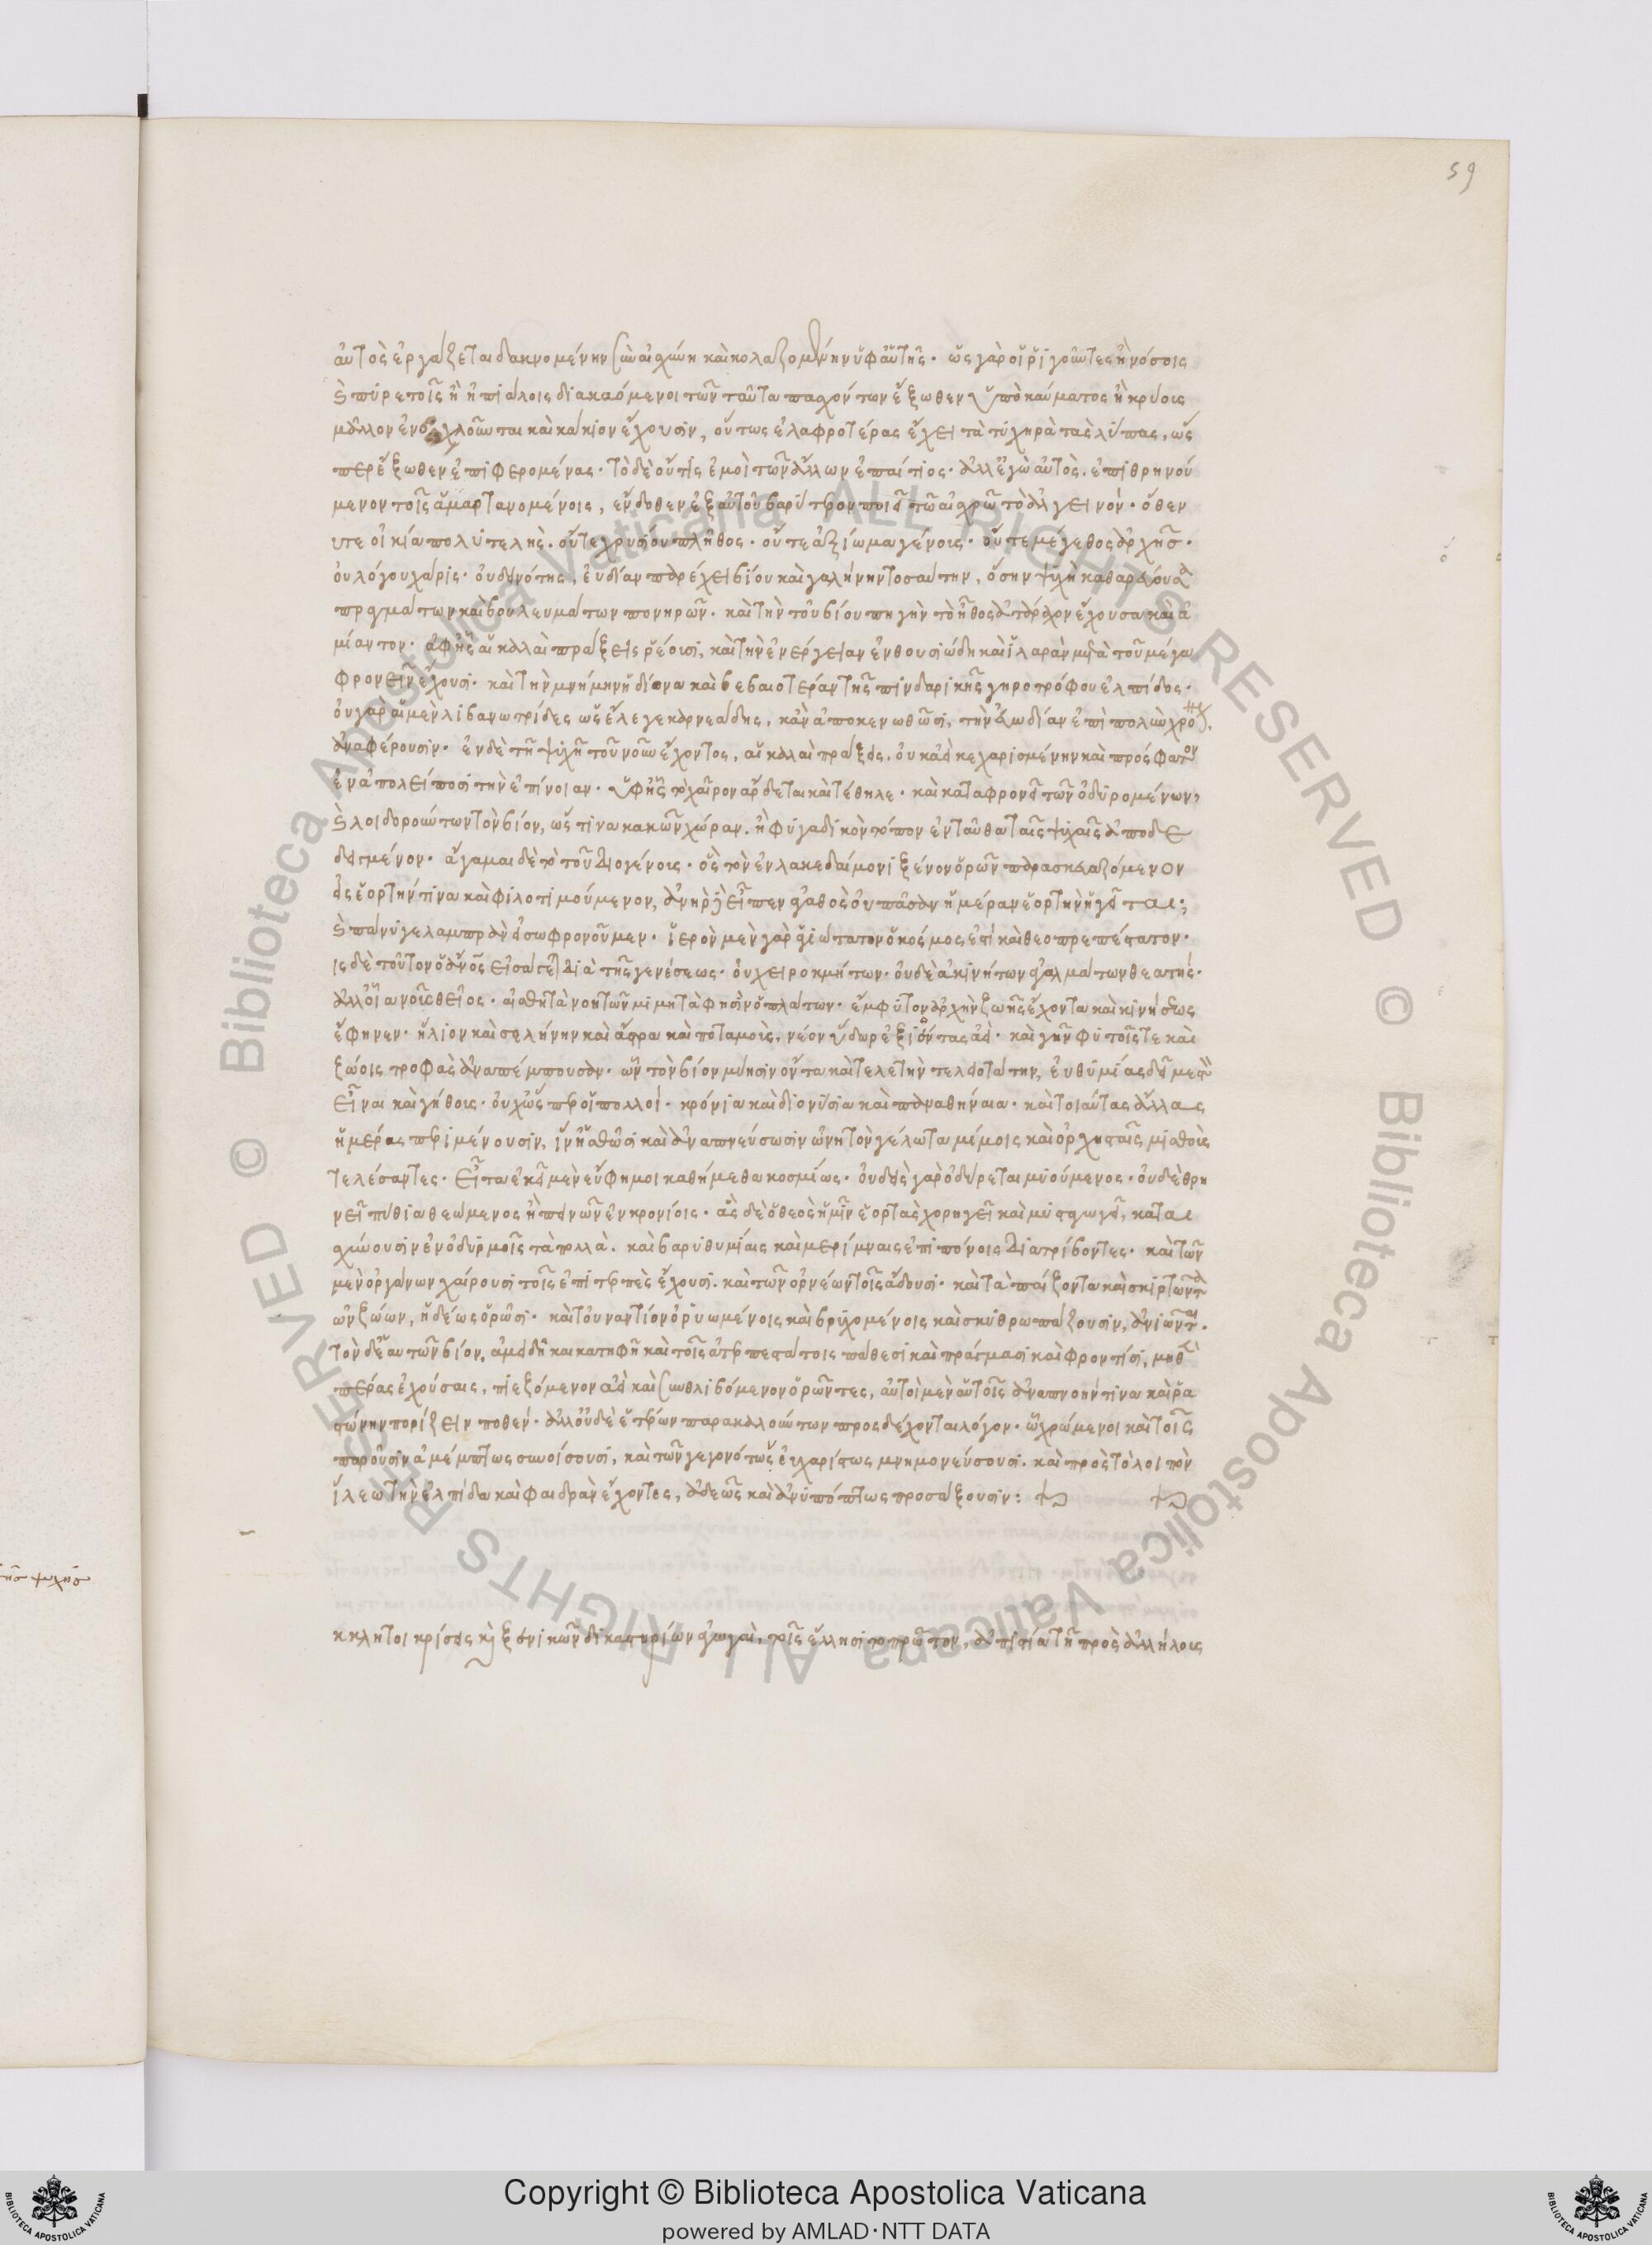 59
αὐτὸς ἐργάζεται δακνομένην σὺν αἰσχύνη καὶ κολαζομένην ὑφ' αὑτῆς. ὡς γὰρ οἱ ῥιγοῦντες ἠπιάλοις
καὶ πυρετοῖς ἢ ἠπιάλοις διακαόμενοι τῶν ταῦτα πασχόντων ἔξωθεν ὑπὸ καύματος ἢ κρύους
μᾶλλον ἐνοχλοῦνται καὶ κάκιον ἔχουσιν, οὕτως ἐλαφροτέρας ἔχει τὰ τυχηρὰ τὰς λύπας, ὡς
περ ἔξωθεν ἐπιφερομένας. τὸ δὲ οὔτις ἐμοὶ τῶν ἄλλων ἐπαίτιος. ἀλλ' ἐγὼ αὐτὸς. ἐπιθρηνού
μενον τοῖς ἁμαρτανομένοις, ἔνδοθεν ἐξ αὐτοῦ βαρύτερον ποιεῖ τῶ αἰσχρῶ τὸ ἀλγεινόν. ὅθεν
οὔτε οἰκία πολυτελὴς. οὔτε χρυσίου πλῆθος. οὔτε ἀξίωμα γένους. οὔτε μέγεθος ἀρχῆς.
οὐ λόγου χάρις. οὐ δεινότης, εὐδίαν παρέχει βίου καὶ γαλήνην τοσαύτην, ὅσην ψυχὴ καθαρεύουσα
πραγμάτων καὶ βουλευμάτων πονηρῶν. καὶ τὴν τοῦ βίου πηγὴν τὸ ἦθος ἀτάραχον ἔχουσα καὶ ἀ
μίαντον. ἀφ' ἧς αἱ καλαὶ πράξεις ῥέουσι, καὶ τὴν ἐνέργειαν ἐνθουσιώδη καὶ ἱλαρὰν μετὰ τοῦ μέγα
φρονεῖν ἔχουσι. καὶ τὴν μνήμην ἡδίονα καὶ βεβαιοτέραν τῆς πινδαρικῆς γηροτρόφου ἐλπίδος.
οὐ γὰρ αἱ μὲν λιβανωτρίδες ὡς ἔλεγε καρνεάδης, κἂν ἀποκενωθῶσι, τὴν εὐωδίαν ἐπὶ πολὺν χρόνον
ἀναφέρουσιν. ἐν δὲ τῆ ψυχῆ τοῦ νοῦν ἔχοντος, αἱ καλαὶ πράξεις. οὐκ ἀεὶ κεχαρισμένην καὶ πρόσφατον
ἐναπολείπουσι τὴν ἐπίνοιαν. ὑφ' ἧς τὸ χαῖρον ἄρδεται καὶ τέθηλε. καὶ καταφρονεῖ τῶν ὀδυρομένων,
καὶ λοιδορούντων τὸν βίον, ὥς τινα κακῶν χώραν. ἢ φυγαδικὸν τόπον ἐνταῦθα ταῖς ψυχαῖς ἀποδε
δειγμένον. ἄγαμαι δὲ τὸ τοῦ διογένους. ὃς τὸν ἐν λακεδαίμονι ξένον ὁρῶν παρασκευαζόμενον
εἰς ἑορτήν τινα καὶ φιλοτιμούμενον, ἀνὴρ δὲ εἶπεν ἀγαθὸς οὐ πᾶσαν ἡμέραν ἑορτὴν ἡγεῖται;
καὶ πάνυ γε λαμπρὰν εἰ σωφρονοῦμεν. ἱερὸν μὲν γὰρ ἁγιώτατον ὁ κόσμος ἐστὶ καὶ θεοπρεπέστατον.
εἰς δὲ τοῦτον ὁ ἄνθρωπος εἰσάγεται διὰ τῆς γενέσεως. οὐ χειροκμήτων. οὐδὲ ἀκινήτων ἀγαλμάτων θεατής.
ἀλλ' οἷα νοῦς θεῖος. αἰσθητὰ νοητῶν μιμητὰ φησὶν ὁ πλάτων. ἔμφυτον ἀρχὴν ζωῆς ἔχοντα καὶ κινήσεως
ἔφηνεν. ἥλιον καὶ σελήνην καὶ ἄστρα καὶ ποταμοὺς, νέον ὕδωρ ἐξιόντας ἀεὶ. καὶ γῆν φυτοῖς τε καὶ
ζώοις τροφὰς ἀναπέμπουσαν. ὧν τὸν βίον μύησιν ὄντα καὶ τελετὴν τελειοτάτην, εὐθυμίας δεῖ μεστὸν
εἶναι καὶ γήθους. οὐχ ὥσπερ οἱ πολλοί. κρόνια καὶ διονύσια καὶ παναθήναια. καὶ τοιαύτας ἄλλας
ἡμέρας περιμένουσιν, ἵν' ἡσθῶσι καὶ ἀναπνεύσωσιν ὠνητὸν γέλωτα μίμοις καὶ ὀρχησταῖς μισθοὺς
τελέσαντες. εἶτα ἐκεῖ μὲν εὔφημοι καθήμεθα κοσμίως. οὐδεὶς γὰρ ὀδύρεται μυούμενος. οὐδὲ θρη
νεῖ πύθια θεώμενος ἢ πεινῶν ἐν κρονίοις. ἃς δὲ ὁ θεὸς ἡμῖν ἑορτὰς χορηγεῖ καὶ μυσταγωγεῖ, καται
σχύνουσιν ἐν ὀδυρμοῖς τὰ πολλὰ. καὶ βαρυθυμίαις καὶ μερίμναις ἐπιπόνοις διατρίβοντες. καὶ τῶν
μὲν ὀργάνων χαίρουσι τοῖς ἐπιτερπὲς ἠχοῦσι. καὶ τῶν ὀρνέων τοῖς ἄδουσι. καὶ τὰ παίζοντα καὶ σκιρτῶντα
τῶν ζώων, ἡδέως ὁρῶσι. καὶ τοὐναντίον ὀρυωμένοις καὶ βρυχομένοις καὶ σκυθρωπάζουσιν, ἀνιῶνται.
τὸν δὲ ἑαυτῶν βίον, ἀμειδῆ καὶ κατηφῆ καὶ τοῖς ἀτερπεστάτοις πάθεσι καὶ πράγμασι καὶ φροντίσι, μηδὲν
πέρας ἐχούσαις, πιεζόμενον ἀεὶ καὶ συνθλιβόμενον ὁρῶντες, αὐτοὶ μὲν αὑτοῖς ἀναπνοήν τινα καὶ ῥα
στώνην πορίζειν ποθέν. ἀλλ' οὐδὲ ἑτέρων παρακαλούντων προσδέχονται λόγον. ᾧ χρώμενοι καὶ τοῖς
παροῦσιν ἀμέμπτως συνοίσουσι, καὶ τῶν γεγονότων εὐχαρίστως μνημονεύσουσι. καὶ πρὸς τὸ λοιπὸν
ἵλεω τὴν ἐλπίδα καὶ φαιδρὰν ἔχοντες, ἀδεῶς καὶ ἀνυπόπτως προσάξουσιν:
κκλητοι κρίσεις καὶ ξενικῶν δικαστηρίων ἀγωγαὶ, τοῖς ἕλλησι τὸ πρῶτον, ἀπιστία τῆ πρὸς ἀλλήλους
τῆς ψυχῆς
Copyright © Biblioteca Apostolica Vaticana
powered by AMLAD·NTT DATA